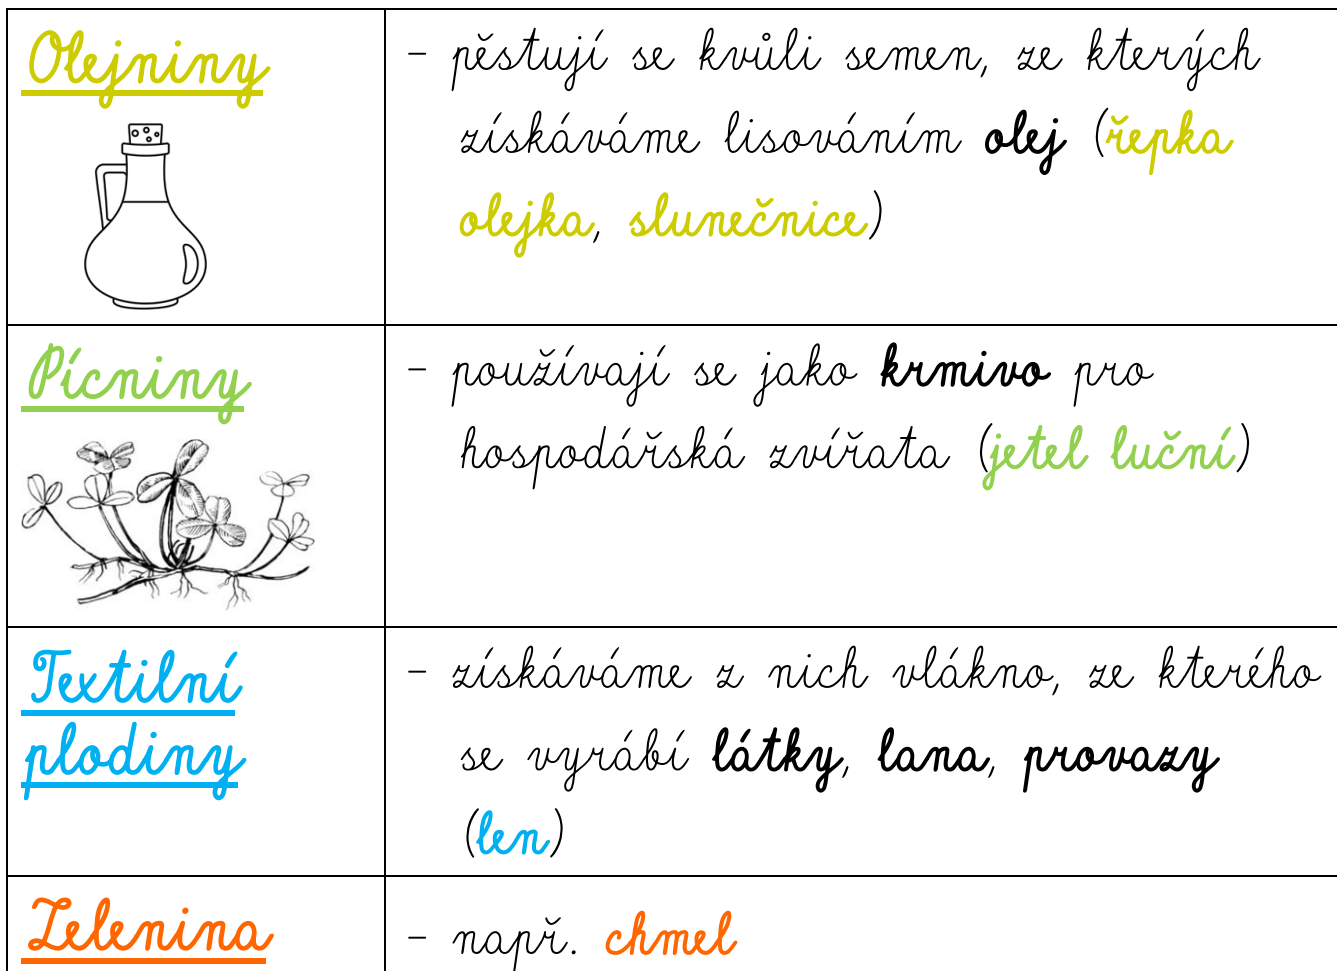 Olejniny
- pěstují se kvůli semen, ze kterých
získáváme lisováním olej (řepka
olejka, slunečnice)
Pícniny
- používají se jako krmivo pro
hospodářská zvířata (jetel luční)
Textilní
plodiny
- získáváme z nich vlákno, ze kterého
se vyrábí látky, lana, provazy
(len)
Zelenina
- např. chmel